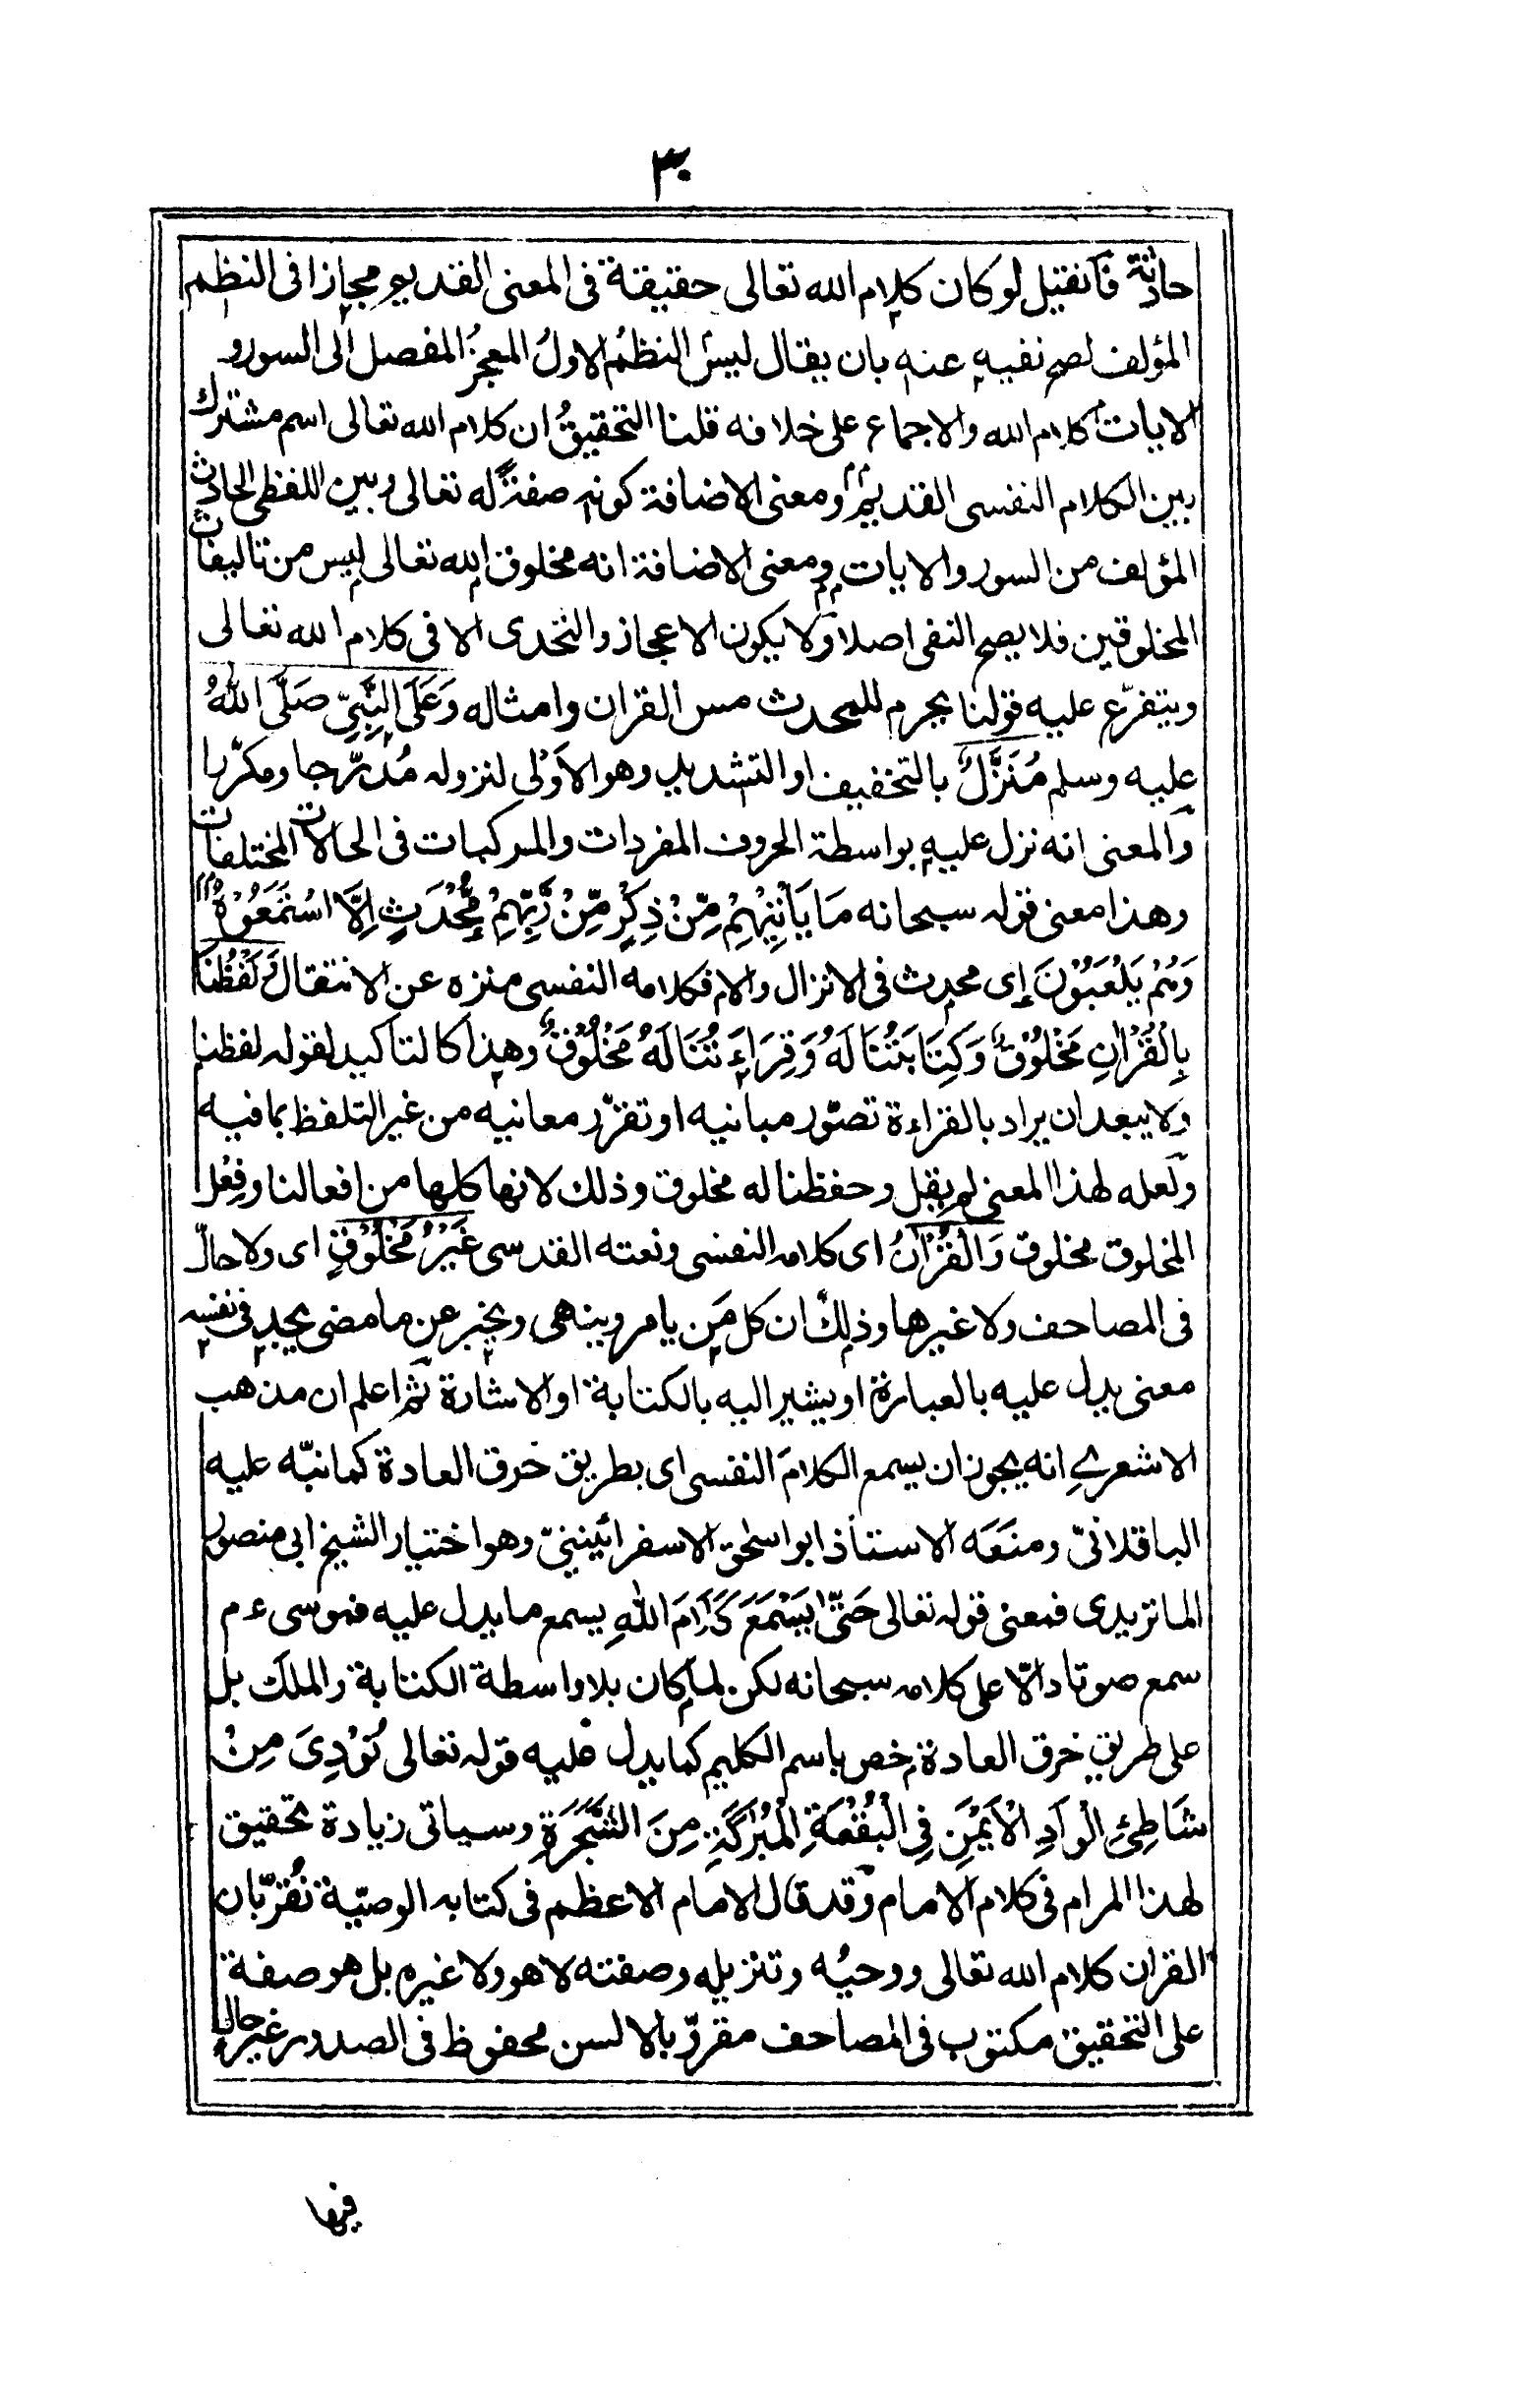 ٣٠
حادثة فان قيل لو كان كلام الله تعالى حقيقة في المعنى القديم مجازا في النظم
المؤلف لصح نفيه عنه بان يقال ليس النظمُ الاولُ المعجزُ المفصل الى السور و
الايات كلام الله والاجماع على خلافه قلنا التحقيقُ ان كلام الله تعالى اسم مشترك
بين الكلام النفسى القديم ومعنى الاضافة كونه صفةً له تعالى وبين اللفظى الحادث
المؤلف من السور والايات ومعنى الاضافة انه مخلوق الله تعالى ليس من تاليفات
المخلوقين فلا يصح النفى اصلا ولا يكون الاعجاز والتحدى الا فى كلام الله تعالى
ويتفرّع عليه قولنا يحرم للمحدث مس القران وامثاله وَعَلَى النَّبِيِّ صَلَّى اللهُ
عليه وسلم مُنَزَّلٌ بالتخفيف او التشديد وهو الاَوْلى لنزوله مُدرّجا ومكرّرا
والمعنى انه نزل عليه بواسطة الحروف المفردات والمركبات فى الحالات المختلفات
وهذا معنى قوله سبحانه مَا يَأْتِيْهِمْ مِّنْ ذِكْرٍ مِّنْ رَّبِّهِمْ مُّحْدَثٍ اِلَّا اسْتَمَعُوْهُ
وَهُمْ يَلْعَبُوْنَ اى محدث فى الانزال والا فكلامه النفسى منزه عن الانتقال وَلَفْظُنَا
بِالْقُرْاٰنِ مَخْلُوْقٌ وَكِتَابَتُنَا لَهُ وَقِرَاءَتُنَا لَهُ مَخْلُوْقٌ وهذا كالتاكيد لقوله لفظنا
ولا يبعد ان يراد بالقراءة تصوّر مبانيه او تقرّر معانيه من غير التلفظ بما فيه
ولعله لهذا المعنى لم يقل وحفظنا له مخلوق وذلك لانها كلها من افعالنا وفِعْل
المخلوق مخلوق وَالْقُرْاٰنُ اى كلامه النفسى ونعته القدسى غَيْرُ مَخْلُوْقٍ اى ولا حالّ
فى المصاحف ولا غيرها وذلك ان كل مَن يامر وينهى ويخبر عن ما مضى يجد فى نفسه
معنى يدل عليه بالعبارة او يشير اليه بالكتابة او الاشارة ثم اعلم ان مذهب
الاشعرے انه يجوز ان يسمع الكلامَ النفسى اى بطريق خرق العادة كما نبّه عليه
الباقلانىّ ومنَعَه الاستاذ ابو اسحٰق الاسفرائينىّ وهو اختيار الشيخ ابى منصور
الماتريدى فمعنى قوله تعالى حَتّٰى يَسْمَعَ كَلَامَ اللهِ يسمع ما يدل عليه فموسى ءم
سمع صوتا دالّا على كلامه سبحانه لكن لما كان بلا واسطة الكتابة والملَك بل
على طريق خرق العادة خص باسم الكليم كما يدل عليه قوله تعالى نُوْدِىَ مِنْ
شَاطِئِ الْوَادِ الْاَيْمَنِ فِي الْبُقْعَةِ الْمُبٰرَكَةِ مِنَ الشَّجَرَةِ وسياتى زيادة تحقيق
لهذا المرام فى كلام الامام وقد قال الامام الاعظم فى كتابه الوصيّة نُقرّ بان
القران كلام الله تعالى ووحيُه وتنزيله وصفته لا هو ولا غيره بل هو صفة
على التحقيق مكتوب فى المصاحف مقروّ بالالسن محفوظ فى الصدور غير حالّ
فيها